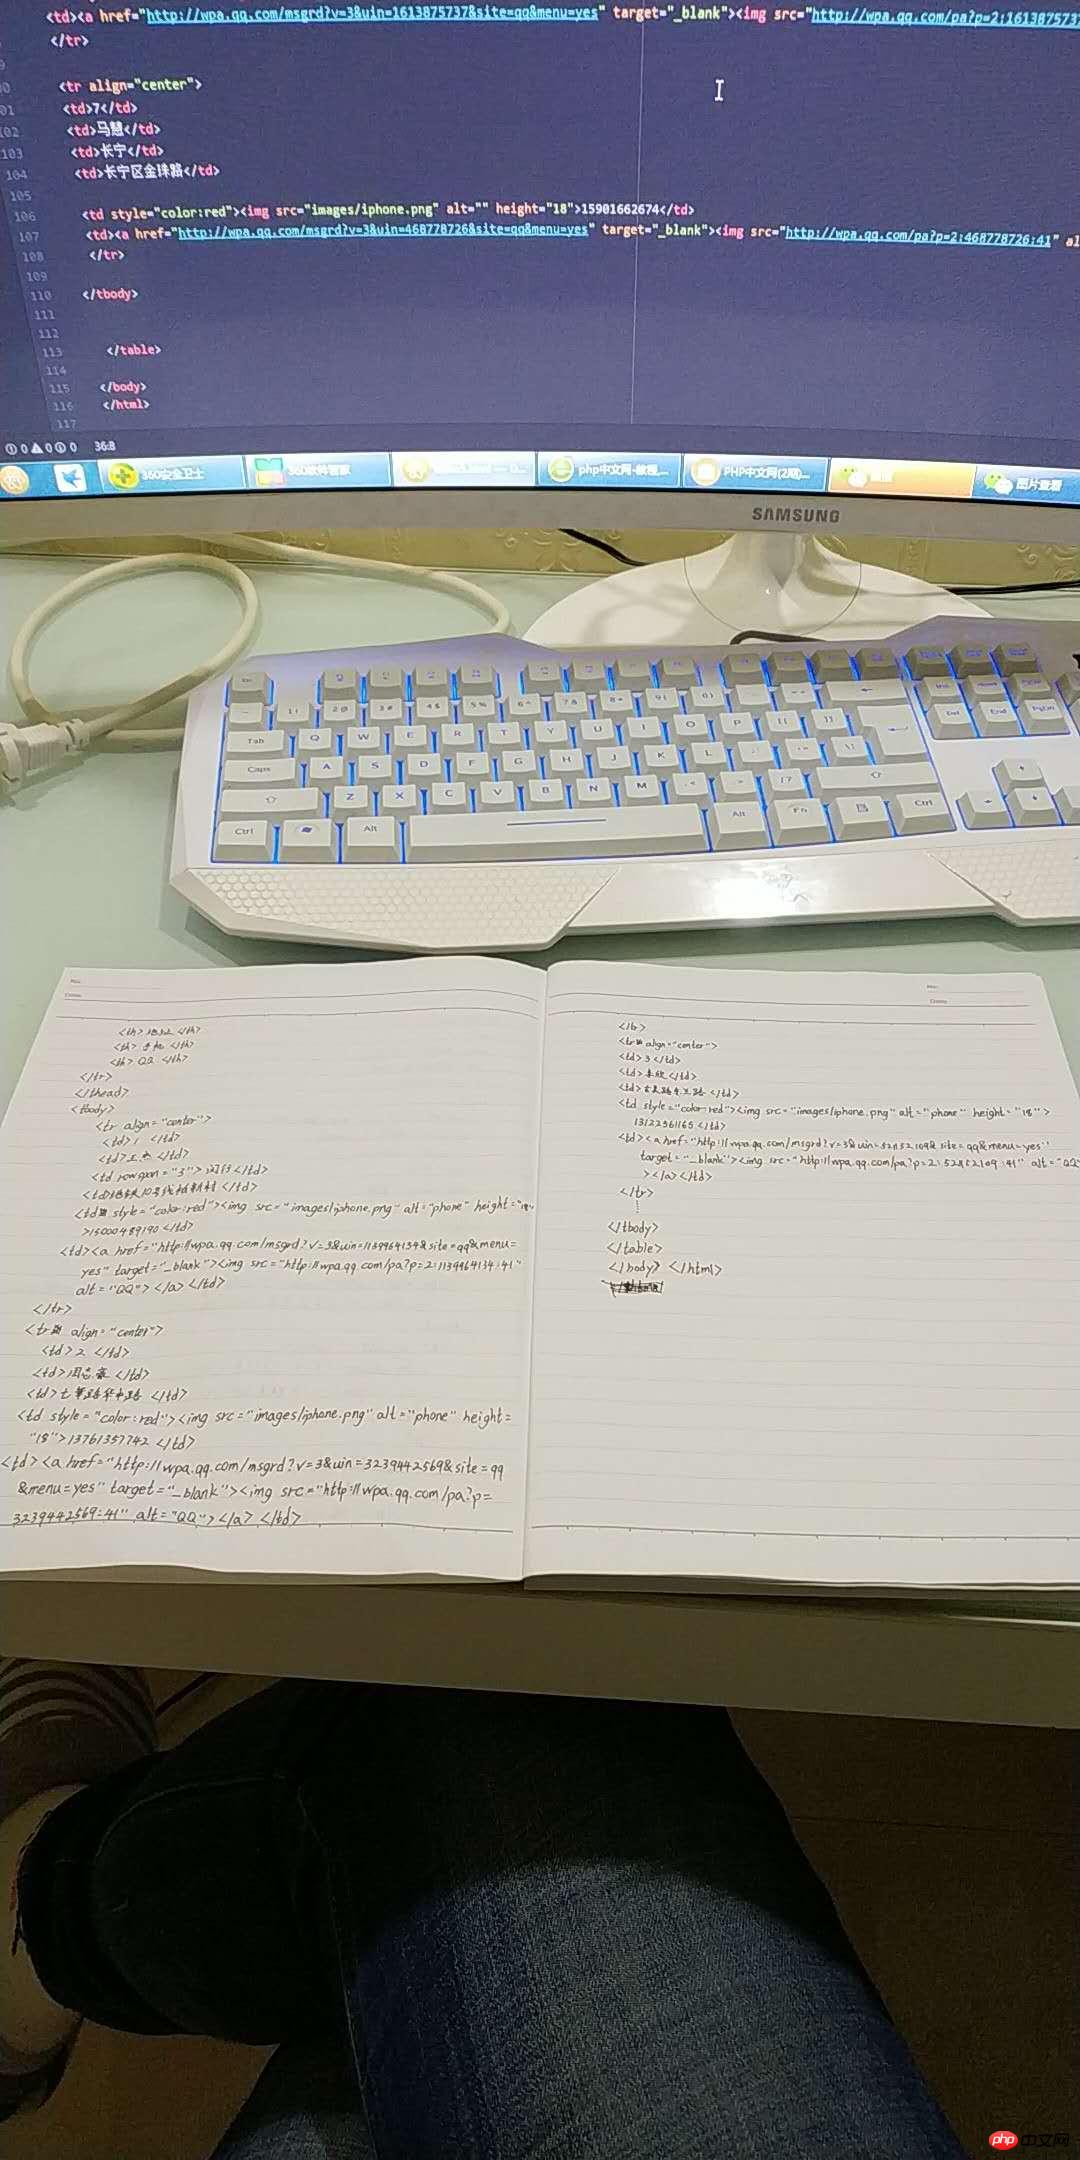 <td><a href="http://wpa.qq.com/msgrd?v=3&uin=1613875737&site=qq&menu=yes" target="_blank"><img src="http://wpa.qq.com/pa?p=2:161387573
</tr>
<tr align="center">
101 <td>7</td>
102 <td>马慧</td>
103 <td>长宁</td>
104 <td>长宁区金珠路</td>
105
106 <td style="color:red"><img src="images/iphone.png" alt="" height="18">15901662674</td>
107 <td><a href="http://wpa.qq.com/msgrd?v=3&uin=468778726&site=qq&menu=yes" target="_blank"><img src="http://wpa.qq.com/pa?p=2:468778726:41" al
108 </tr>
109
110 </tbody>
111
112
113 </table>
114
115 </body>
116 </html>
117
0 0 0 36:8
360安全卫士 360软件管家 php中文网-教程... PHP中文网(2期)... 图片查看
SAMSUNG
Tab Q W E R T Y U I O P
Caps A S D F G H J K L
Z X C V B N M
Ctrl Alt Alt Fn Ctrl
Del End PgDn
<th>地址</th>
<th>手机</th>
<th>QQ</th>
</tr>
</thead>
<tbody>
<tr align="center">
<td>1 </td>
<td></td>
<td rowspan="3">闵行</td>
<td>地铁10号线 </td>
<td style="color:red"><img src="images/iphone.png" alt="phone" height="18"
>15000489190</td>
<td><a href="http://wpa.qq.com/msgrd?v=3&uin=1139964134&site=qq&menu=
yes" target="_blank"><img src="http://wpa.qq.com/pa?p=2:1139964134:41"
alt="QQ"></a></td>
</tr>
<tr align="center">
<td>2 </td>
<td>周志 </td>
<td>七莘路 </td>
<td style="color:red"><img src="images/iphone.png" alt="phone" height=
"18">13761357742 </td>
<td><a href="http://wpa.qq.com/msgrd?v=3&uin=3239442569&site=qq
&menu=yes" target="_blank"><img src="http://wpa.qq.com/pa?p=
3239442569:41" alt="QQ"></a></td>
</tr>
<tr align="center">
<td>3</td>
<td></td>
<td></td>
<td style="color:red"><img src="images/iphone.png" alt="phone" height="18">
13122561165</td>
<td><a href="http://wpa.qq.com/msgrd?v=3&uin= &site=qq&menu=yes"
target="_blank"><img src="http://wpa.qq.com/pa?p=2: :41" alt="QQ"
></a></td>
</tr>
</tbody>
</table>
</body> </html>
php 中文网